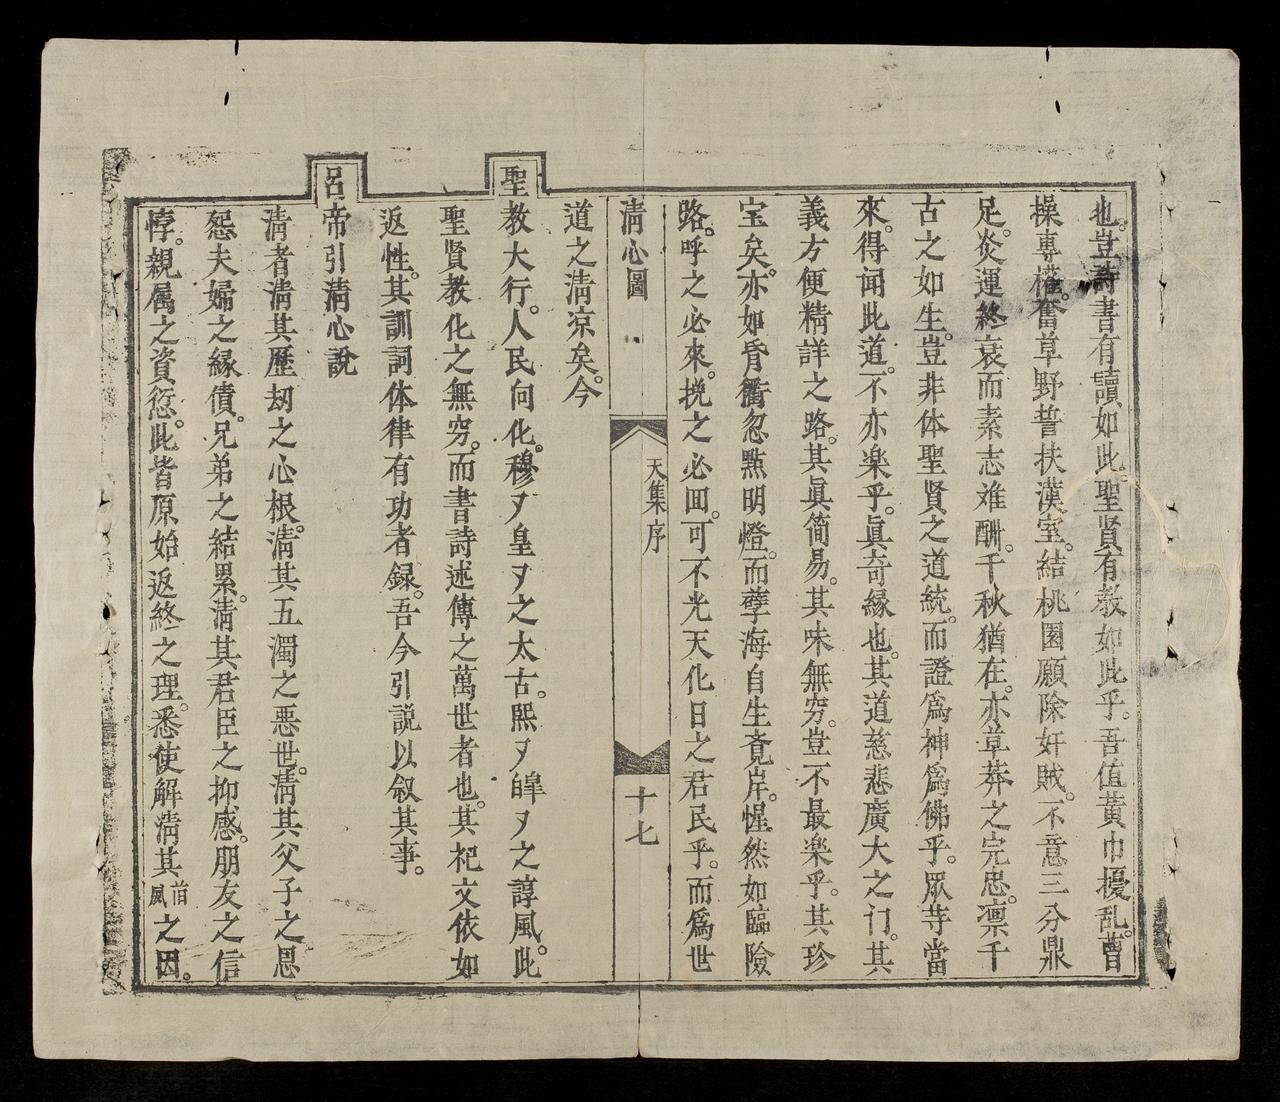 也。豈詩書有讀如此。聖賢有教如此乎。吾值黃巾擾乱。曹
操專權。奮草野誓扶漢室。結桃園願除奸賊。不意三分鼎
足。炎運終衰而素志难酬。千秋猶在。亦草莽之完忠。凛千
古之如生。豈非体聖賢之道統。而證爲神爲佛乎。眾䒭當
來。得闻此道。不亦楽乎。眞竒縁也。其道慈悲廣大之门。其
義方便精詳之路。其眞简易。其味無穷。豈不最楽乎。其珍
宝矣。亦如昏衢忽點明燈。而孽海自生竟岸。惺然如臨險
路。呼之必來。挽之必囬。可不光天化日之君民乎。而爲世
清心圖
天集序
十七
道之清凉矣。今
聖教大行。人民向化。穆〻皇〻之太古。熙〻皥〻之諄風。此
聖賢教化之無穷。而書詩述傳之萬世者也。其祀文依如
返性。其訓詞体律有功者録。吾今引説以叙其事。
呂帝引清心說
清者清其歷刼之心根。清其五濁之悪世。清其父子之恩
怨夫婦之縁債。兄弟之結累。清其君臣之抑感。朋友之信
悖。親属之資愆。此皆原始返終之理。悉使解清其首風之因。